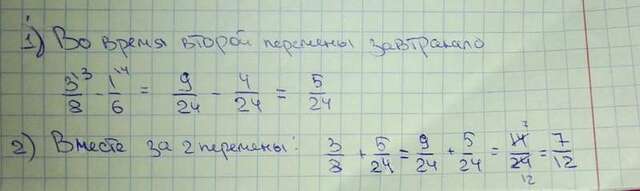 1) Во время второй перемены завтракало
3/8 ³ - 1/6 ⁴ = 9/24 - 4/24 = 5/24
2) Вместе за 2 перемены: 3/8 + 5/24 = 9/24 + 5/24 = 14/24 = 7/12
7
12